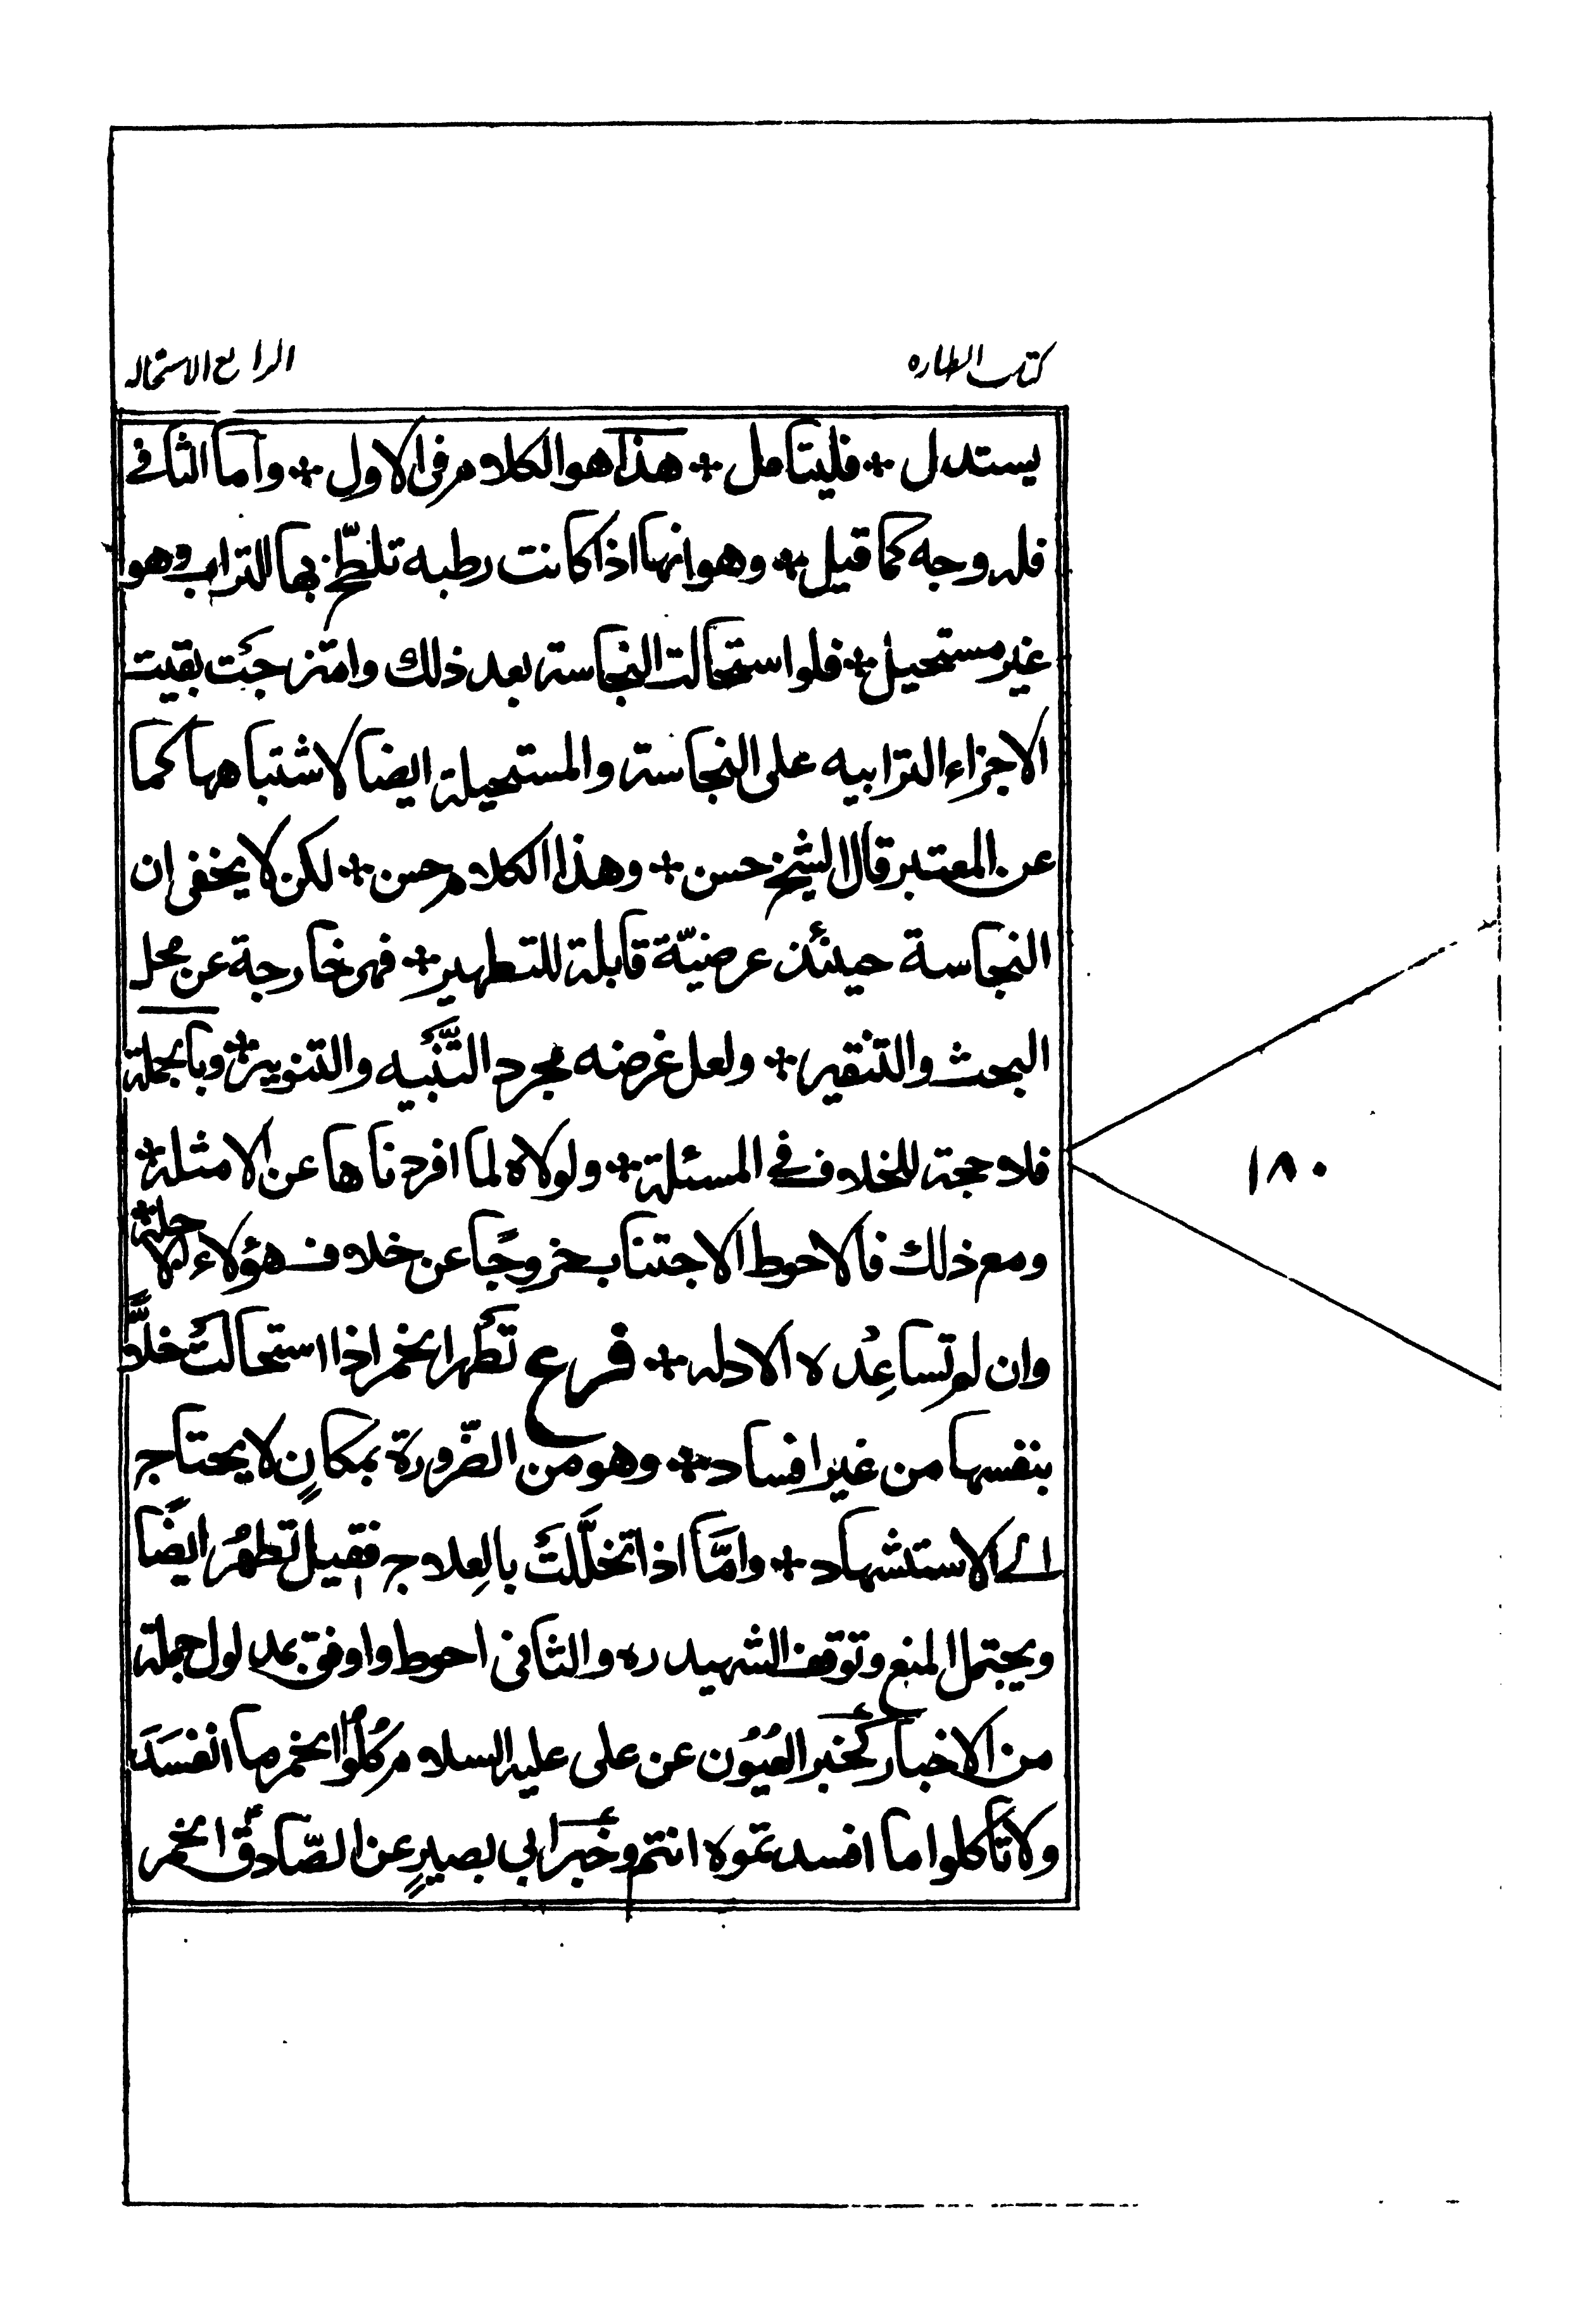 كتاب الطهاره
الرابع الاستحاله
يستدل + فليتأمل + هذا هو الكلام فى الاول + وأما الثانى
فله وجه كما قيل + وهو انها اذا كانت رطبه تلطّخ بها التراب وهو
غير مستحيل + فلو استحالت النجاسة بعد ذلك وامتزجَت بقيت
الاجزاء الترابيه على النجاسة والمستحيلة ايضا لاشتباهها كما
عن المعتبر قال الشيخ حسن + وهذا الكلام حسن + لكن لا يخفى ان
النجاسة حينئذ عرضيّة قابلة للتطهير + فهى خارجة عن محل
البحث والتنقير + ولعل غرضه مجرد التّنَبيه والتنوير + وبالجملة
فلا حجة للخلاف فى المسئلة + ولولاه لما افردناها عن الامثلة +
ومع ذلك فالاحوط الاجتناب خروجًا عن خلاف هؤلاء الاجلة +
وان لم تساعِدُه الادله + فرع تَطهر الخمر اذا استحالَت خلًّا
بنفسها من غير افساد + وهو من الضّرورة بمكانٍ لا يحتاج
الى الاستشهاد + وامَّا اذا تخلَّلَت بالعِلاج فقيل تَطهُر ايضًا
ويحتمل المنع وتوقف الشهيد ره والثانى احوط واوفق بمدلول جملة
من الاخبار كَخبر العُيُون عن على عليه السلام كُلُوا الخمر ما انفسَدَ
ولا تأكلوا ما افسدتموه انتم وخبَر ابى بصيرٍ عن الصّادق ع الخمر
١٨٠